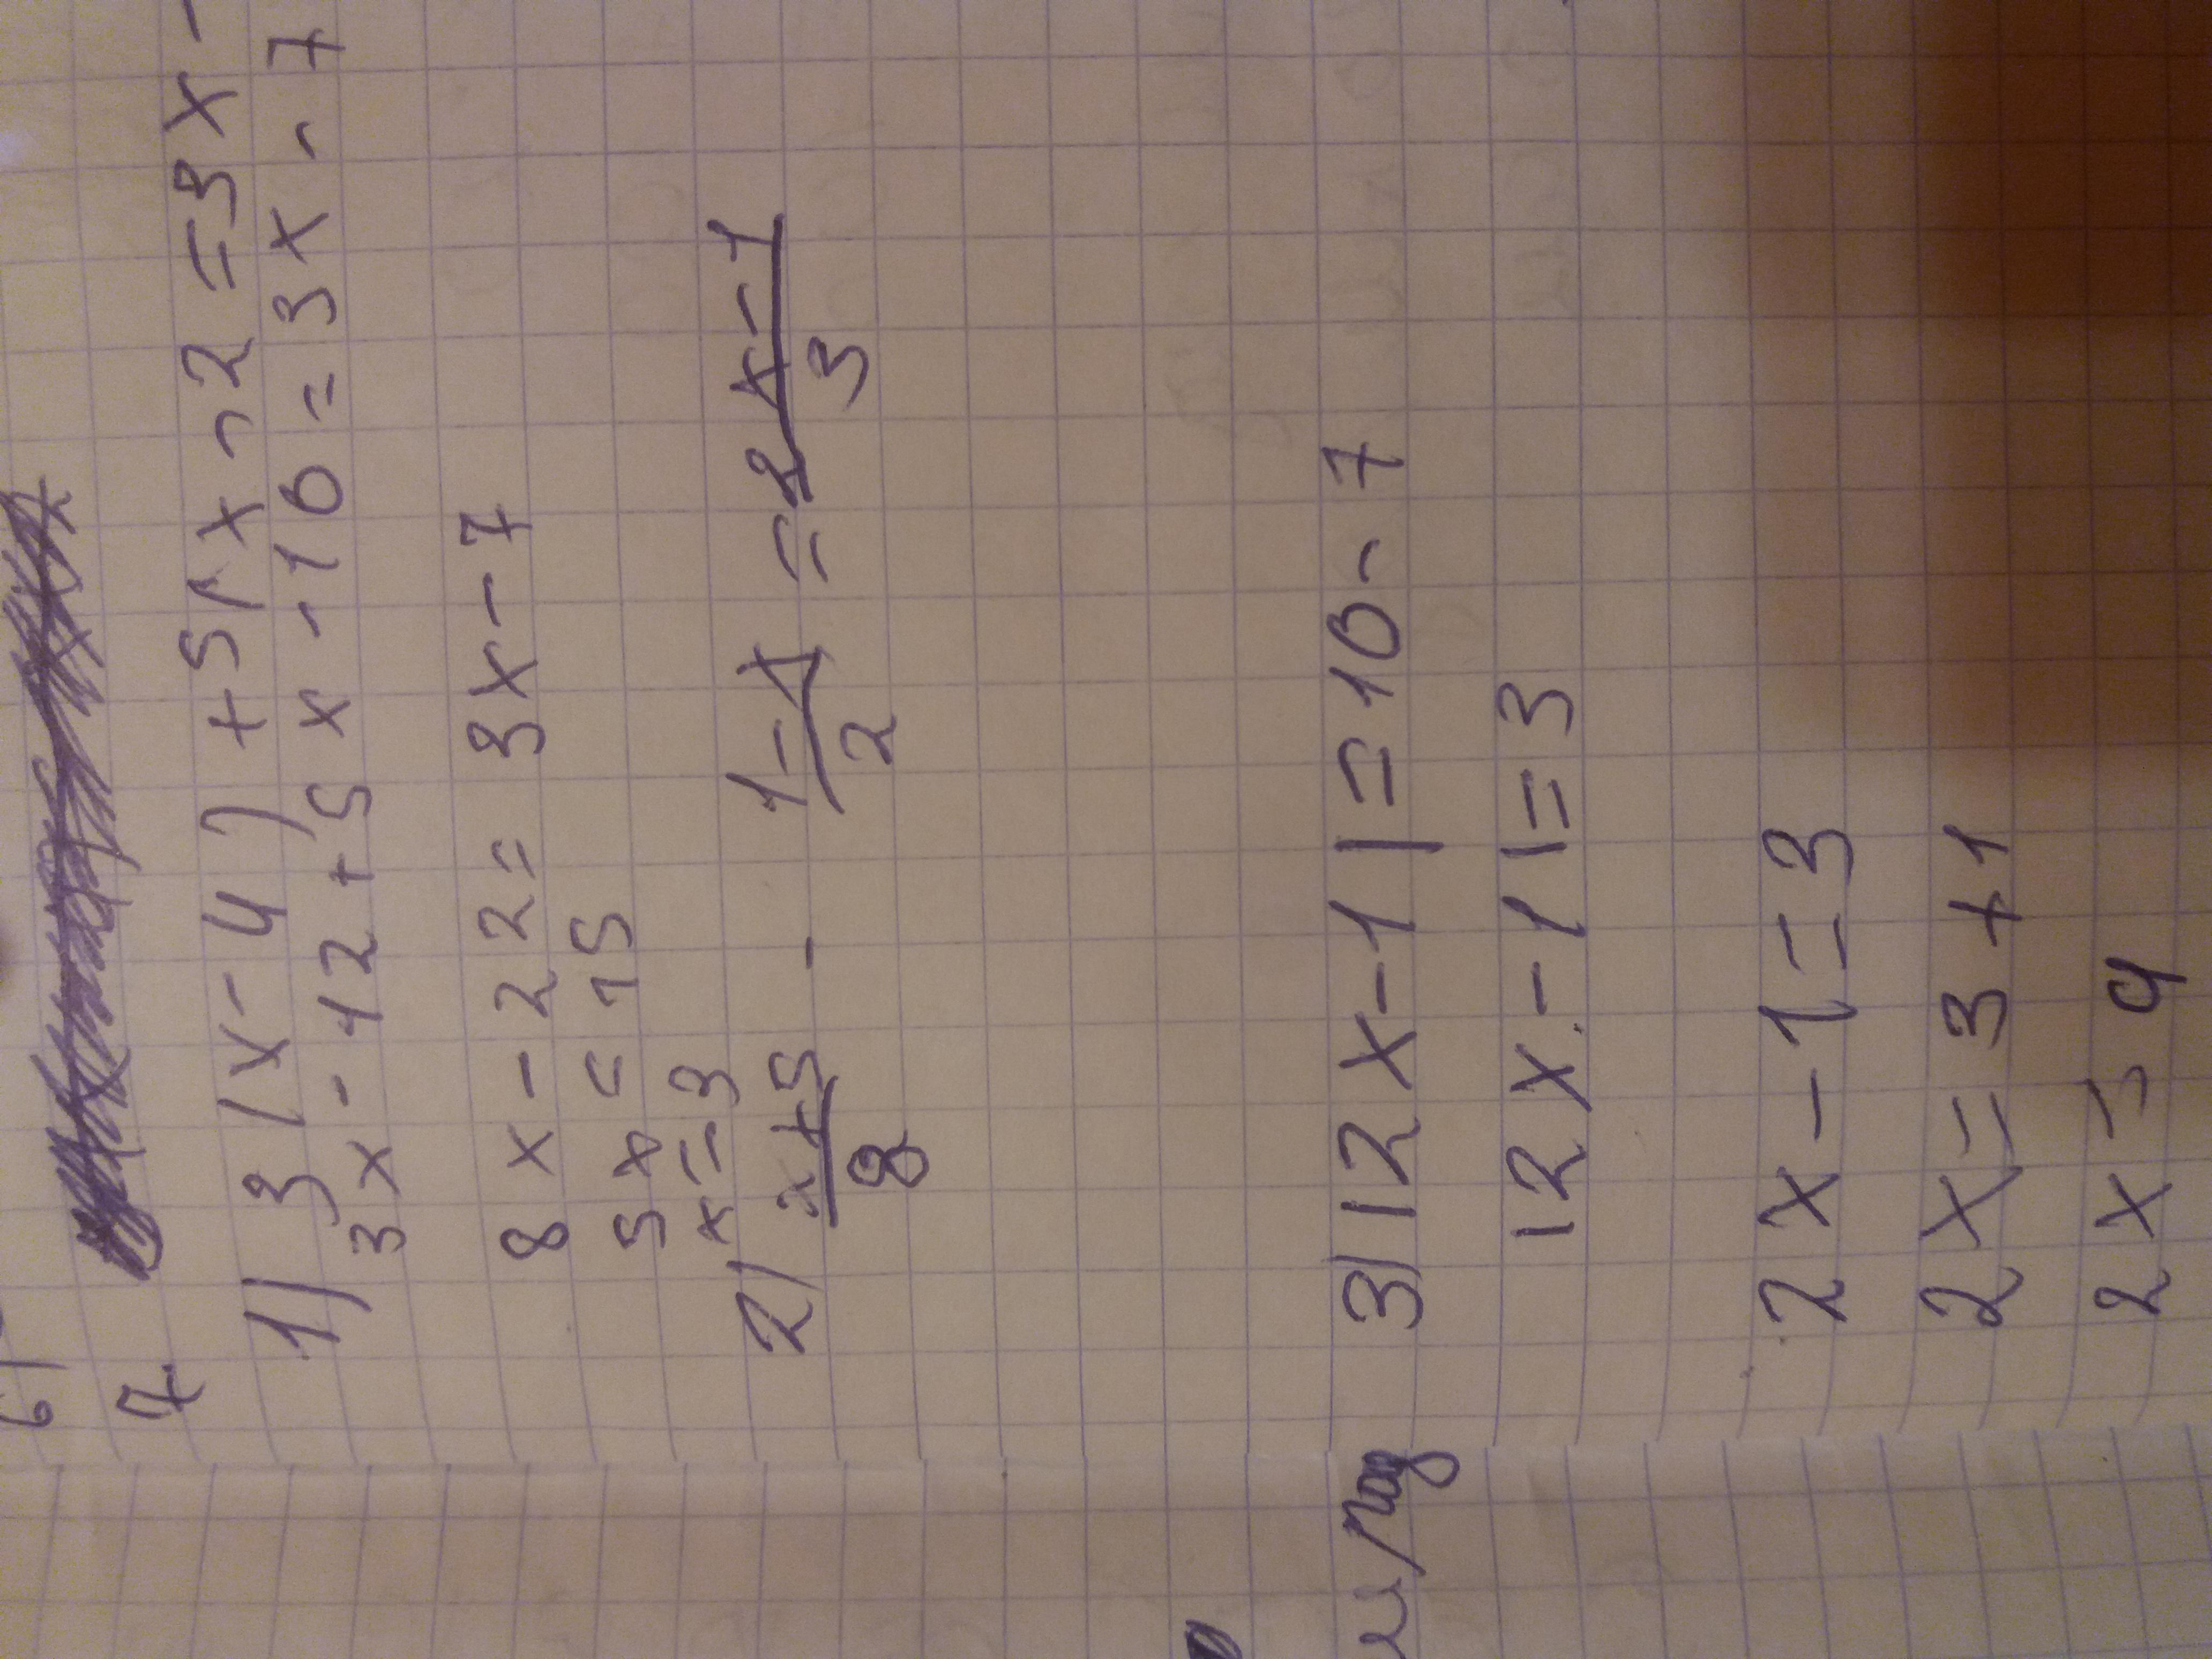 6)
7.
1) 3(x-4)+5(x-2=3x-
3x-12+5x-10=3x-7
8x-22=3x-7
5x=15
x=3
2) x+5/8 - 1-x/2 = 2x-1/3
3) |2x-1|=10-7
|2x-1|=3
2x-1=3
2x=3+1
2x=4